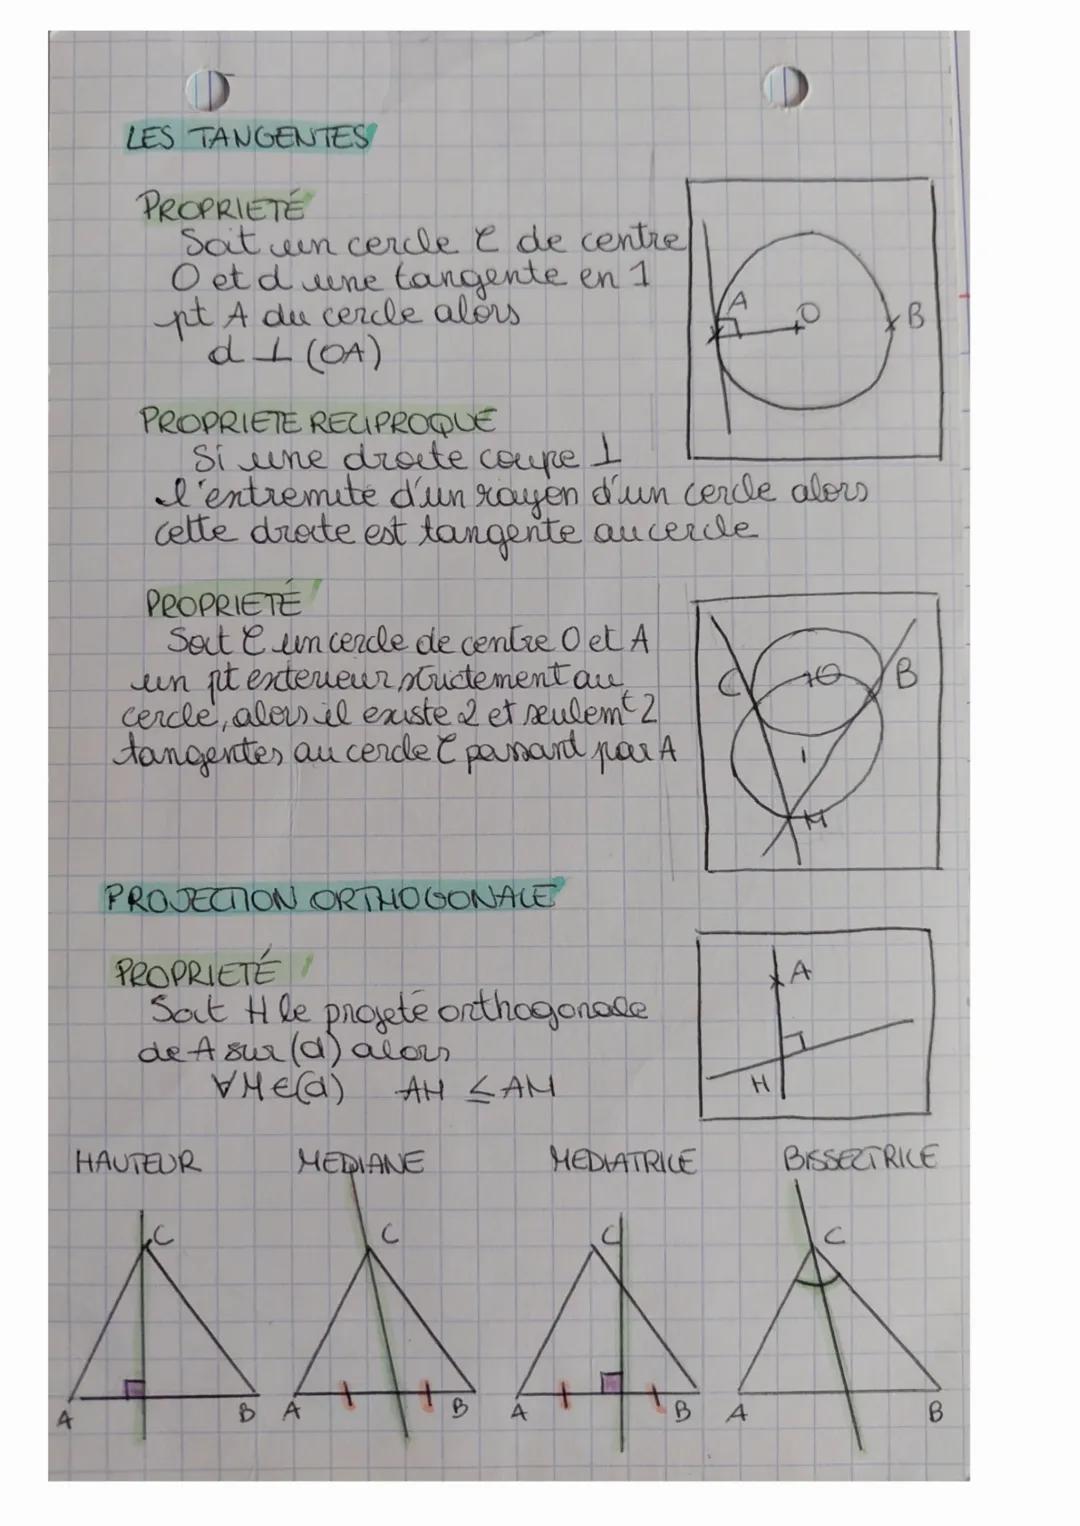 LES TANGENTES
PROPRIETÉ
Soit un cercle C de centre
O et d une tangente en 1
pt A du cercle alors
d ⊥ (OA)
A
O
B
PROPRIETE RECIPROQUE
Si une droite coupe ⊥
l'extremité d'un rayon d'un cercle alors
cette droite est tangente au cercle
PROPRIETÉ
Soit C un cercle de centre O et A
un pt exterieur strictement au
cercle, alors il existe 2 et seulemt 2
tangentes au cercle C passant par A
C
O
B
I
M
PROJECTION ORTHOGONALE
PROPRIETÉ
Soit H le projeté orthogonale
de A sur (d) alors
∀M∈(d) AH ≤ AM
A
H
HAUTEUR MEDIANE MEDIATRICE BISSECTRICE
C C C C
A B A B A B A B